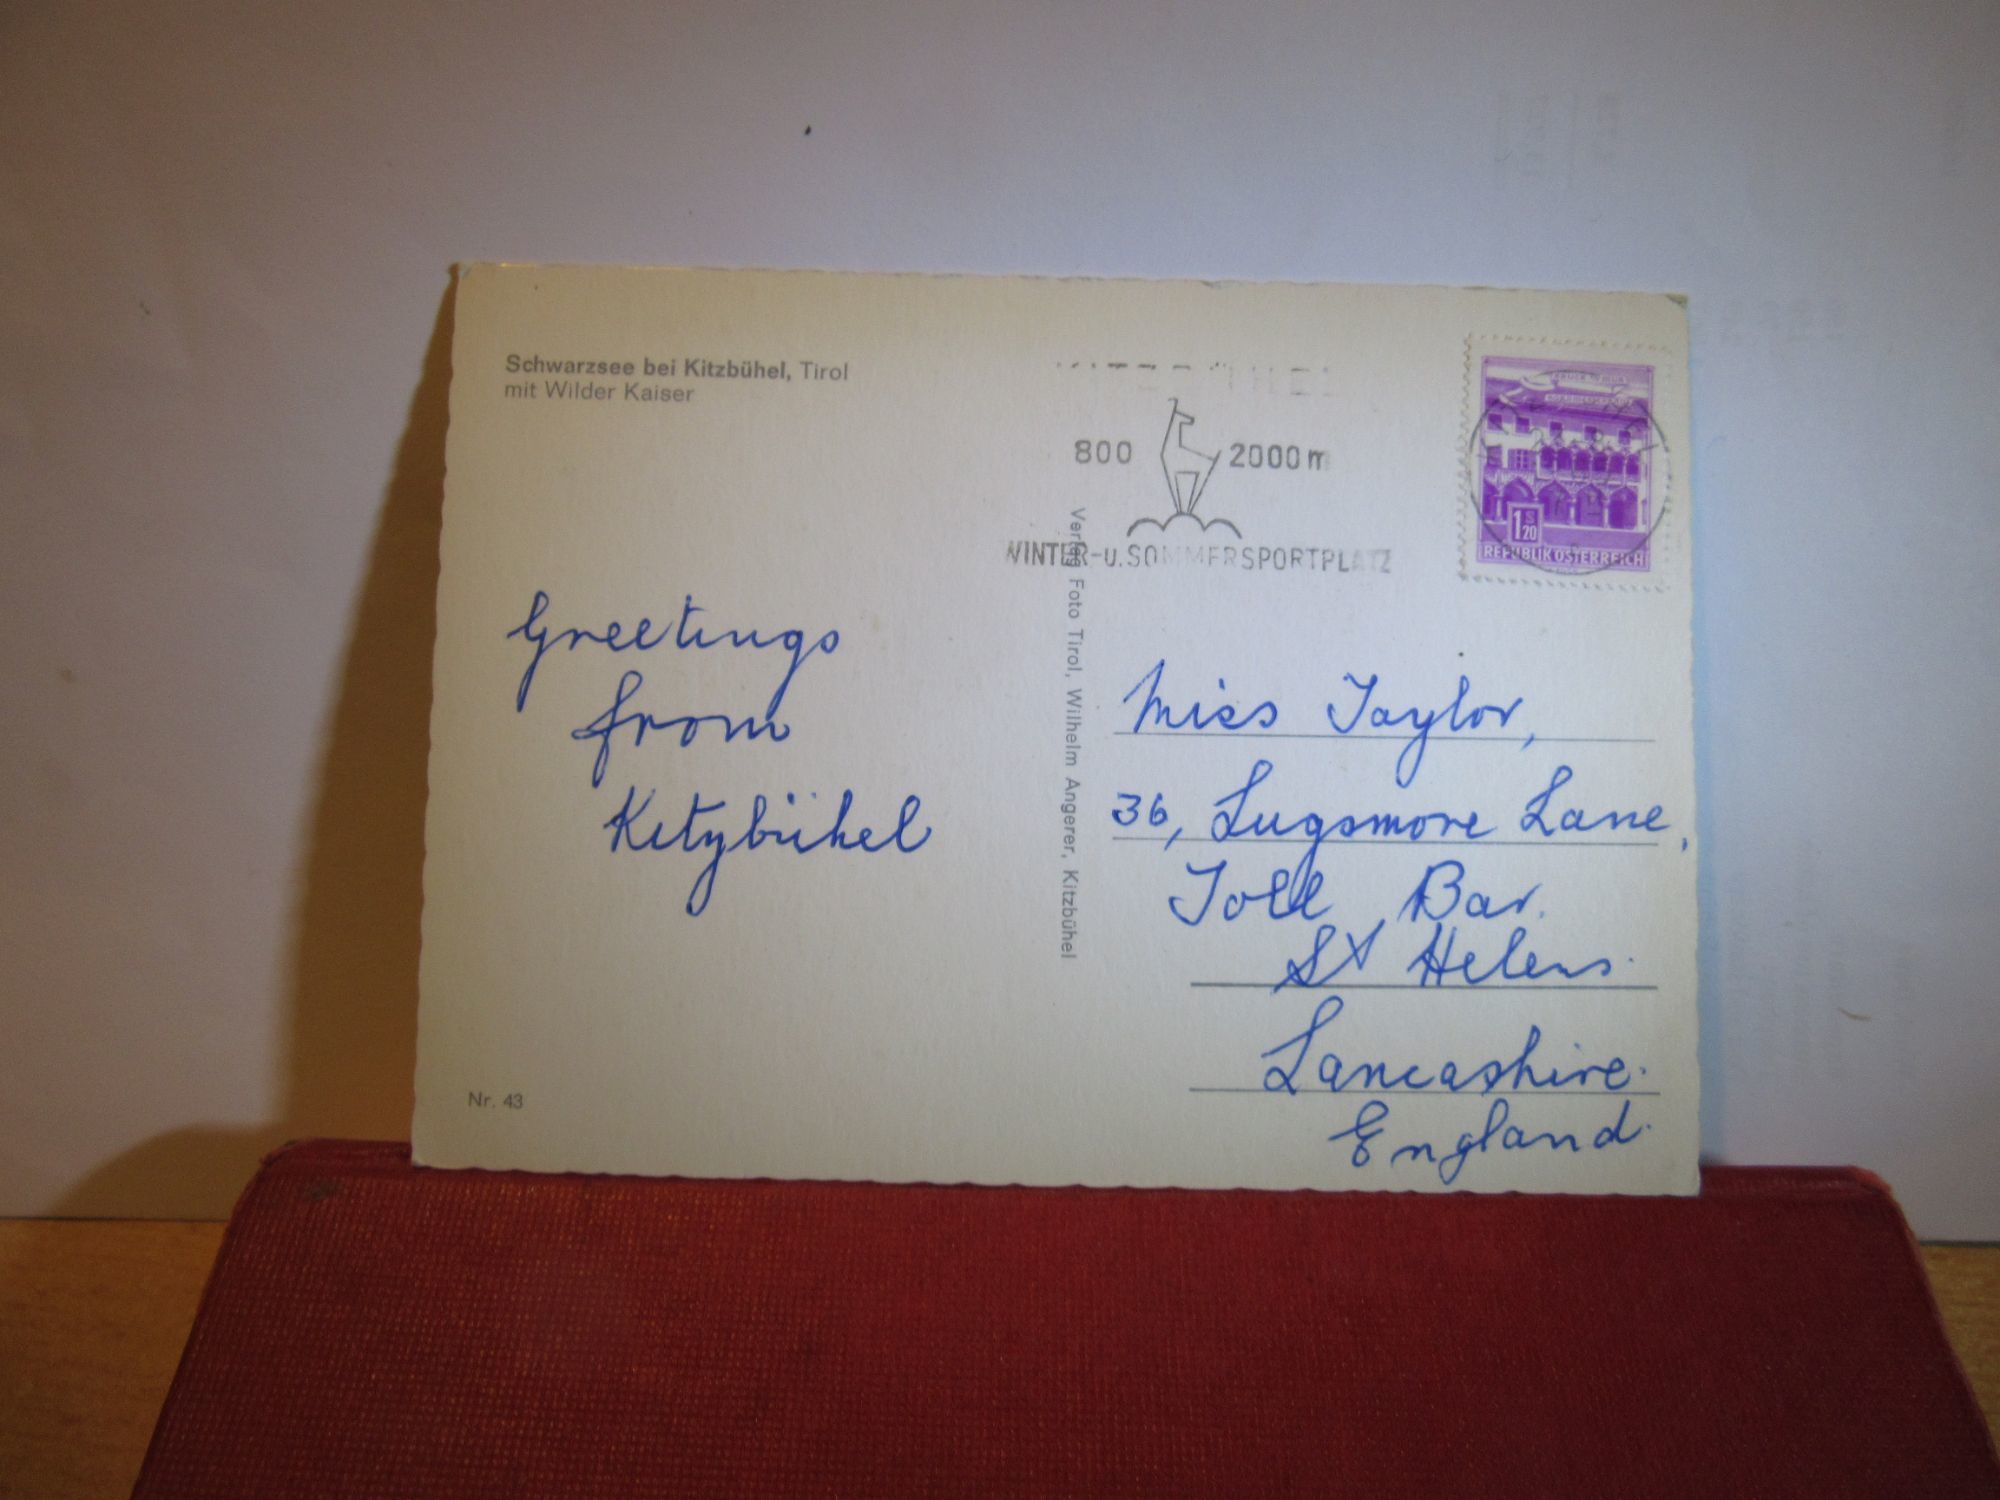 Schwarzsee bei Kitzbühel, Tirol
mit Wilder Kaiser
KITZBÜHEL
800 2000 m
WINTER-u. SOMMERSPORTPLATZ
1 S 20
REPUBLIK ÖSTERREICH
Verlag Foto Tirol, Wilhelm Angerer, Kitzbühel
Greetings
from
Kitzbühel
Miss Taylor,
36, Lugsmore Lane,
Toll Bar.
St Helens.
Lancashire.
England.
Nr. 43